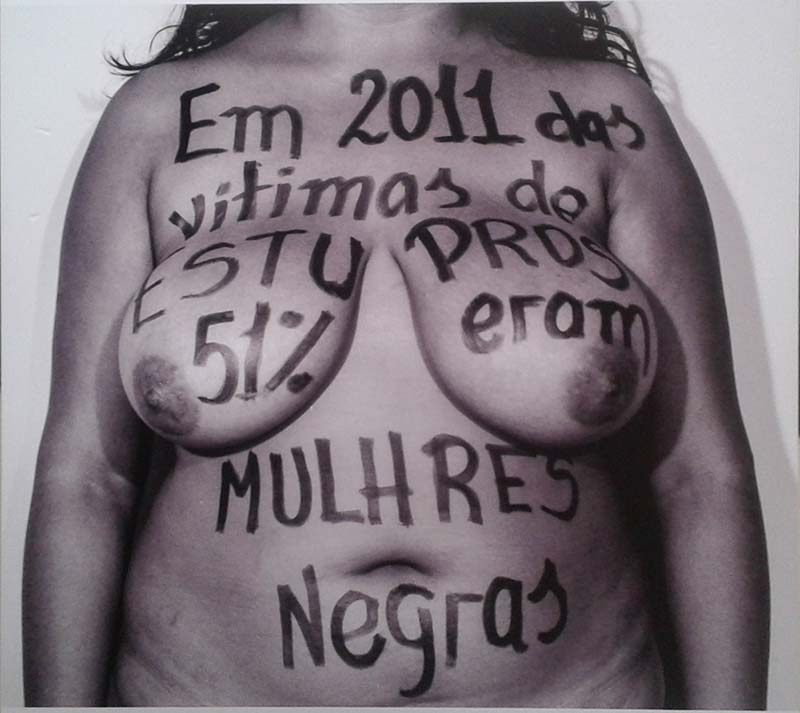 Em 2011 das
vitimas de
ESTUPROS
51% eram
MULHRES
Negras